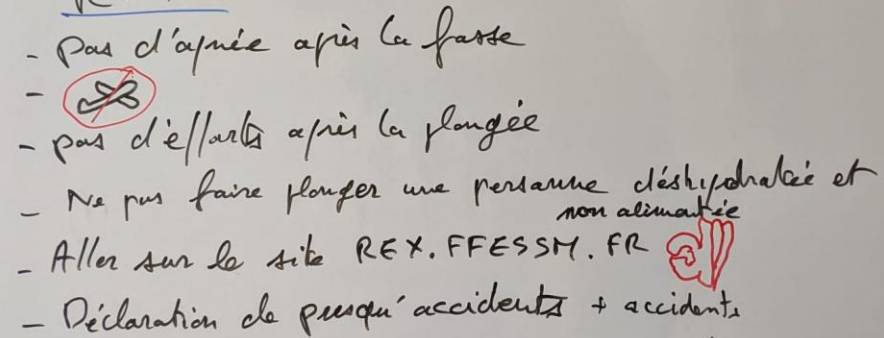 - pas d'apnée après la fosse
-
- pas d'efforts après la plongée
- Ne pas faire plonger une personne déshydratée et
non alimentée
- Aller sur le site REX.FFESSM.FR
- Déclaration de presqu'accidents + accidents